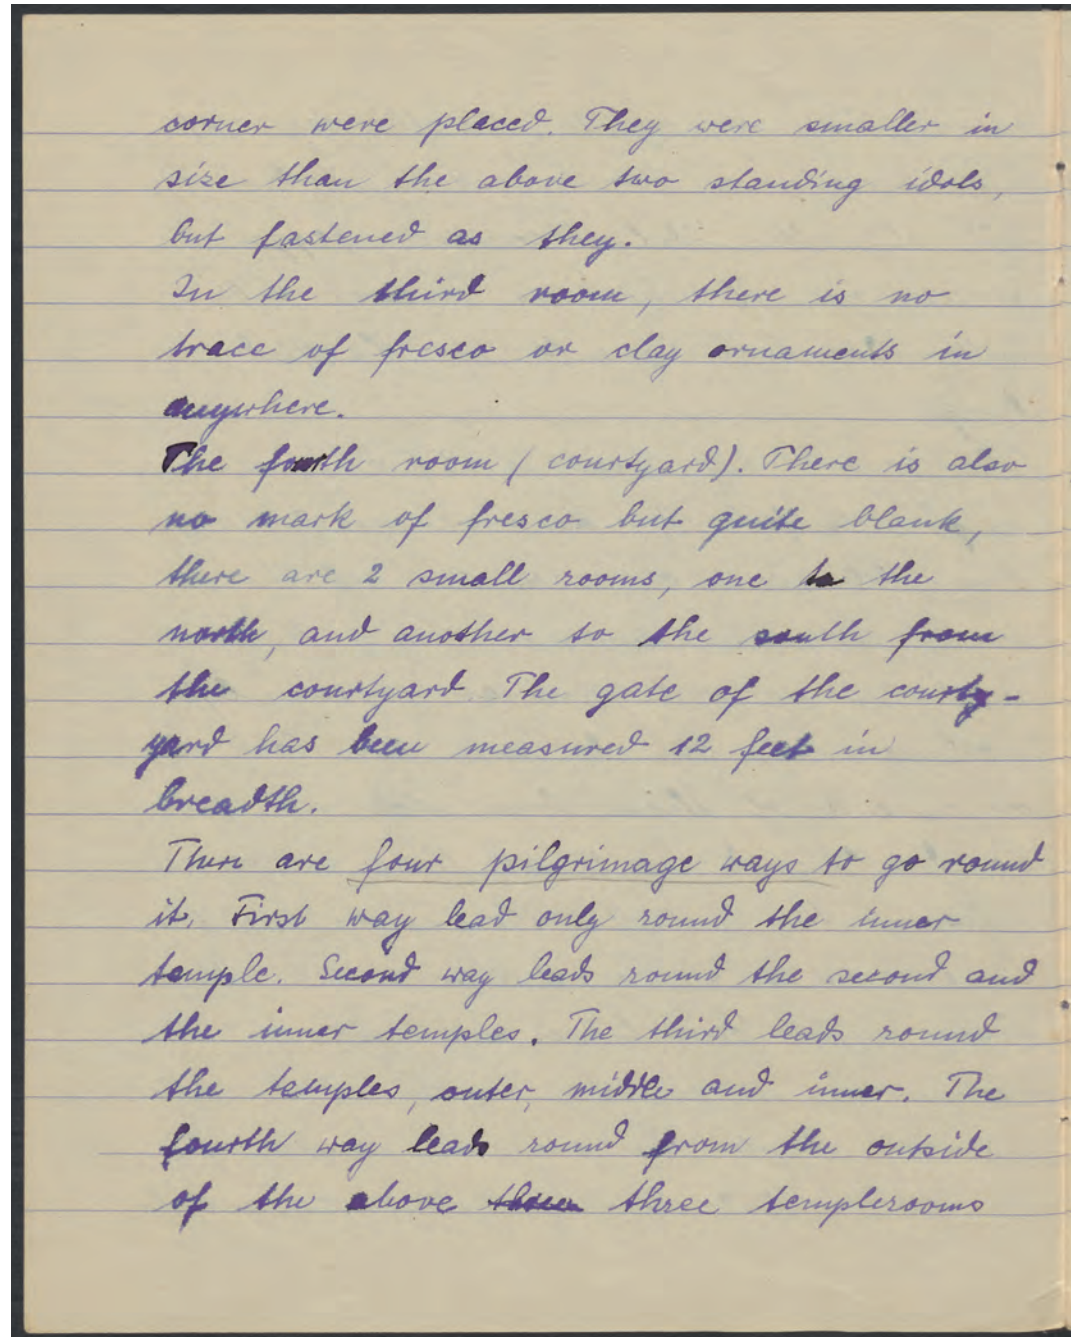 corner were placed. They were smaller in
size than the above two standing idols,
but fastened as they.
In the third room, there is no
trace of fresco or clay ornaments in
anywhere.
The fourth room (courtyard). There is also
no mark of fresco but quite blank,
there are 2 small rooms, one to the
north, and another to the south from
the courtyard. The gate of the courty-
yard has been measured 12 feet in
breadth.
There are four pilgrimage ways to go round
it. First way lead only round the inner
temple. Second way leads round the second and
the inner temples. The third leads round
the temples, outer, middle and inner. The
fourth way leads round from the outside
of the above three templerooms